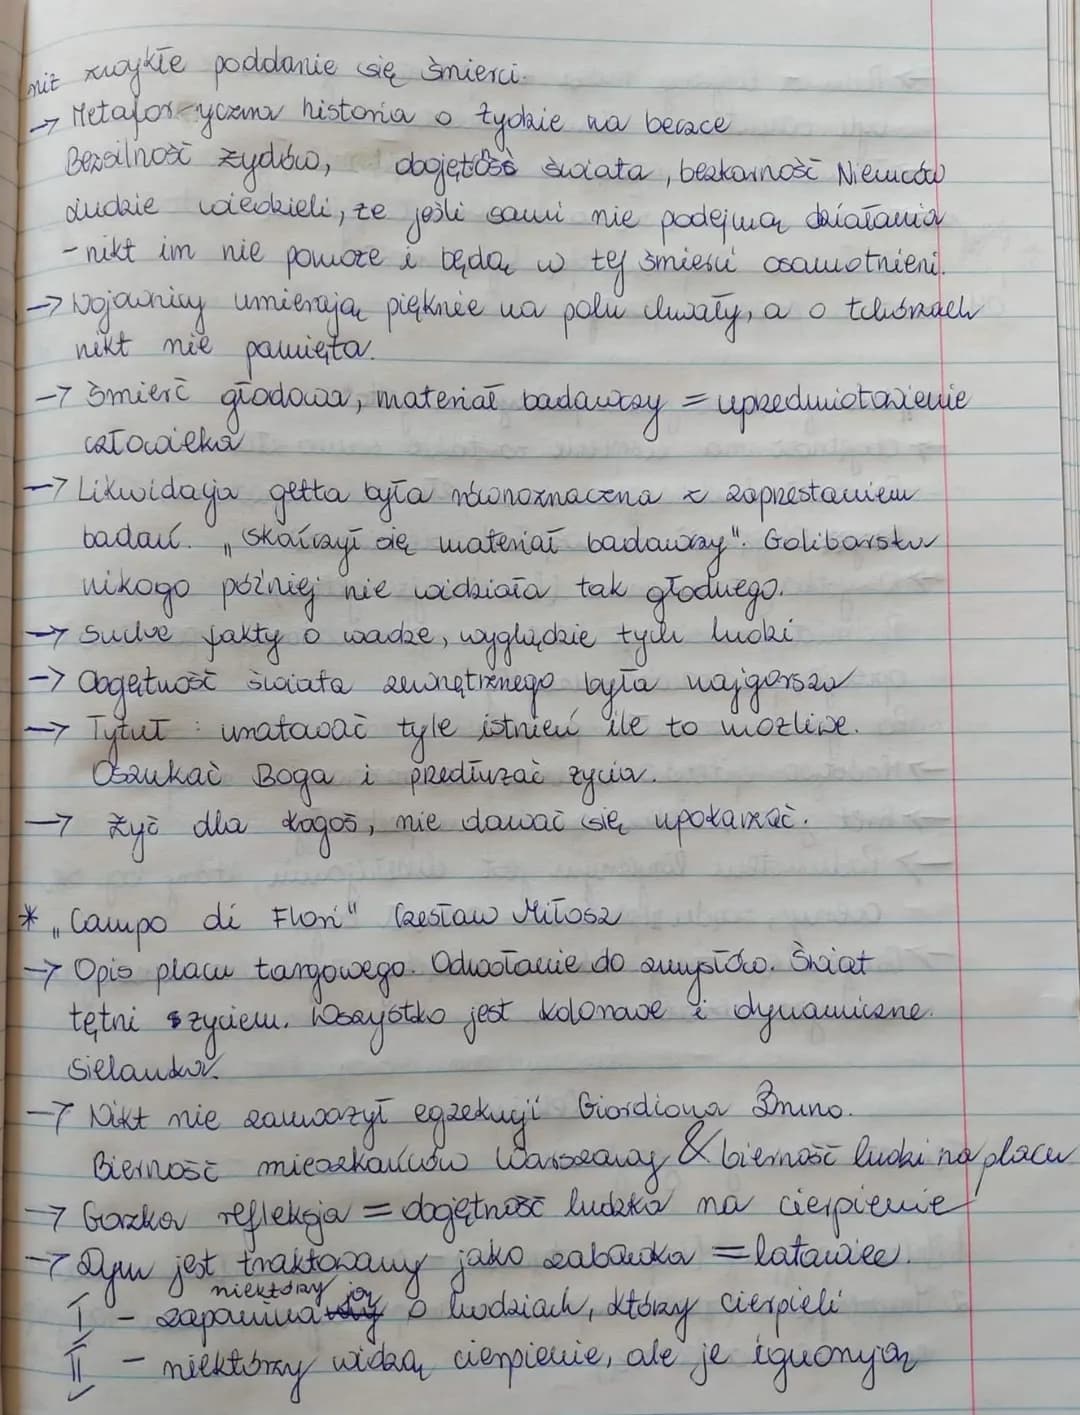 niż zwykłe poddanie się śmierci.
→ Metafor-yczna historia o żydzie na beczce
Bezsilność żydów, obojętość świata, bezkarność Niemców
Ludzie wiedzieli, że jeśli sami nie podejmą działania
- nikt im nie pomoże i będą w tej śmierci osamotnieni.
→ Wojownicy umierają pięknie na polu chwały, a o tchórzach
nikt nie pamięta.
→ Śmierć głodowa, materiał badawczy = uprzedmiotowienie
człowieka
→ Likwidacja getta była równoznaczna z zaprzestaniem
badań. „Skończył się materiał badawczy". Golibarska
nikogo później nie widziała tak głodnego.
→ Suche fakty o wadze, wyglądzie tych ludzi
→ Obojętność świata zewnętrznego była najgorsza
→ Tytuł : uratować tyle istnień ile to możliwe.
Oszukać Boga i przedłużać życia.
→ Żyć dla kogoś, nie dawać się upokarzać.
* „Campo di Fiori" Czesław Miłosz
→ Opis placu targowego. Odwołanie do zmysłów. Świat
tętni życiem. Wszystko jest kolorowe i dynamiczne.
Sielanka.
→ Nikt nie zauważył egzekucji Giordiona Bruno.
Bierność mieszkańców Warszawy & bierność ludzi na placu
→ Gorzka refleksja = obojętność ludzka na cierpienie
→ Dym jest traktowany jako zabawka = latawiec.
niektórzy ją
I - zapomina o ludziach, którzy cierpieli
II - niektórzy widzą cierpienie, ale je ignorują